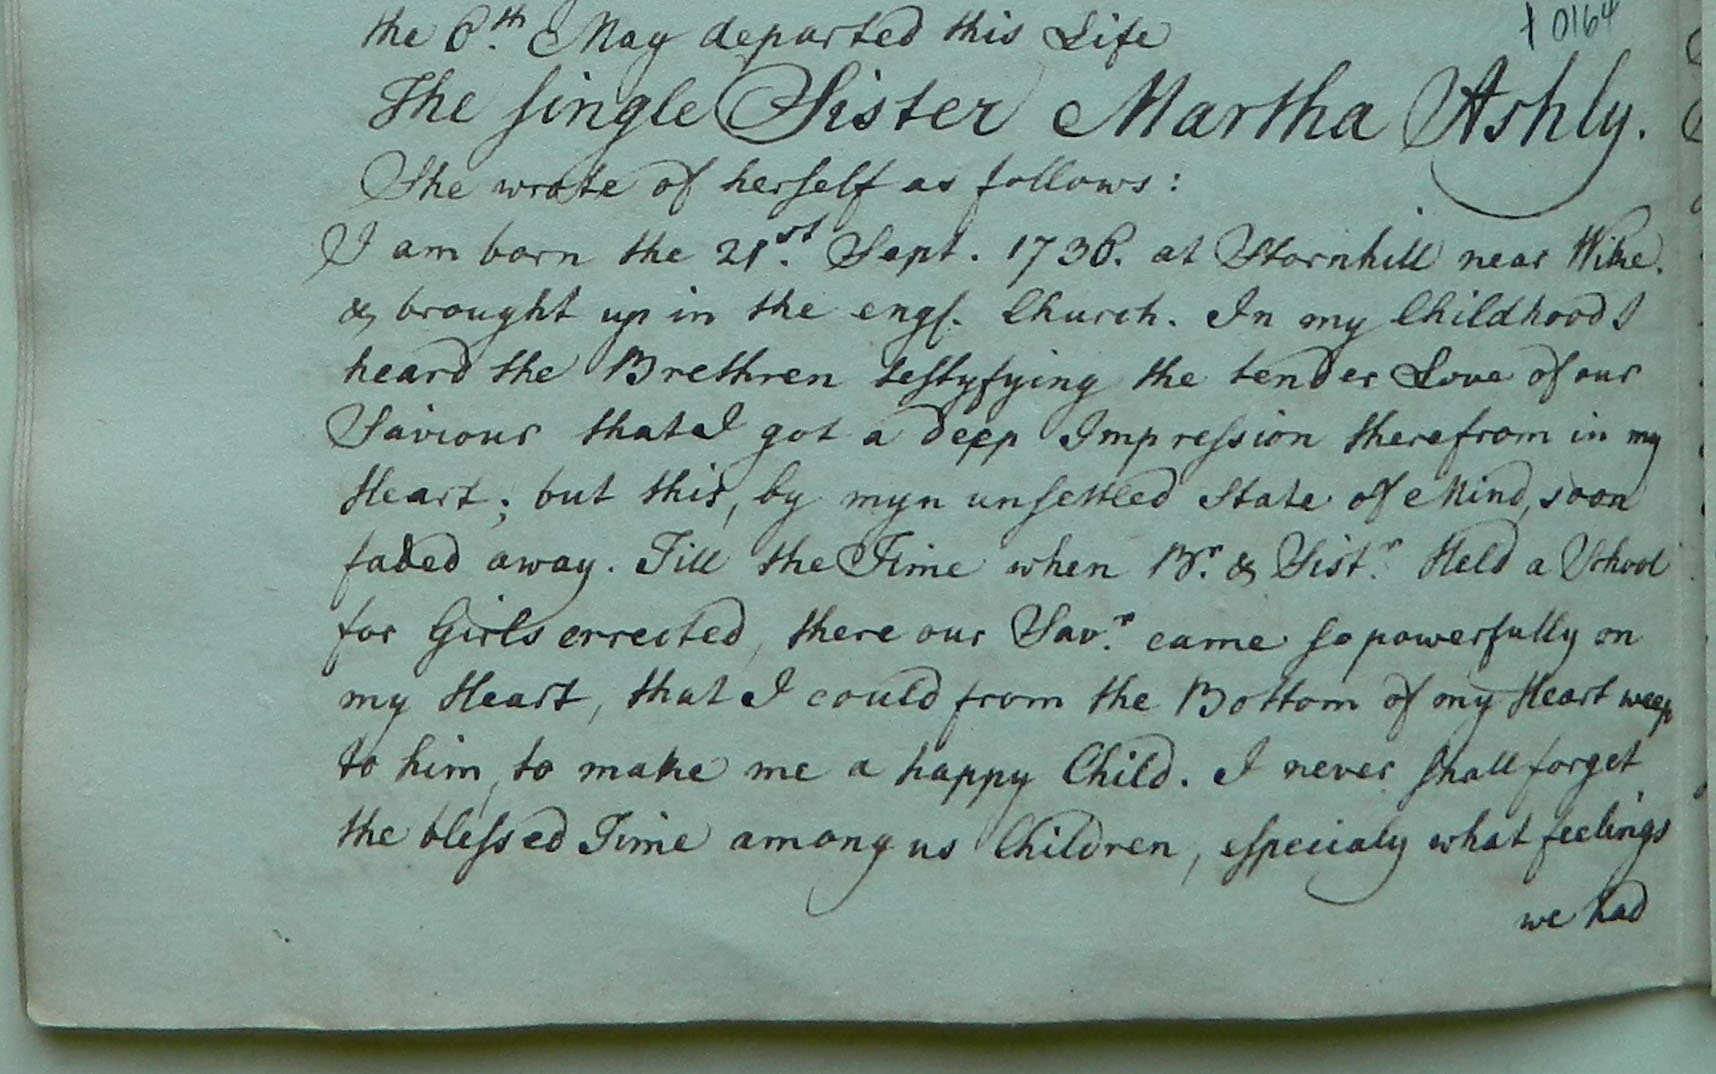 the 6.th May departed this Life
† 0164
The single Sister Martha Ashly.
She wrote of herself as follows:
I am born the 21.st Sept. 1736. at Stornhill near Wike.
& brought up in the engl. Church. In my Childhood I
heard the Brethren testyfying the tender Love of our
Saviour that I got a deep Impression therefrom in my
Heart; but this, by myn unsettled State of Mind, soon
faded away. Till the Time when Br. & Sist.r Held a School
for Girls errected, there our Sav.r came so powerfully on
my Heart, that I could from the Bottom of my Heart weep
to him, to make me a happy Child. I never shall forget
the blessed Time among us Children, especialy what feelings
we had